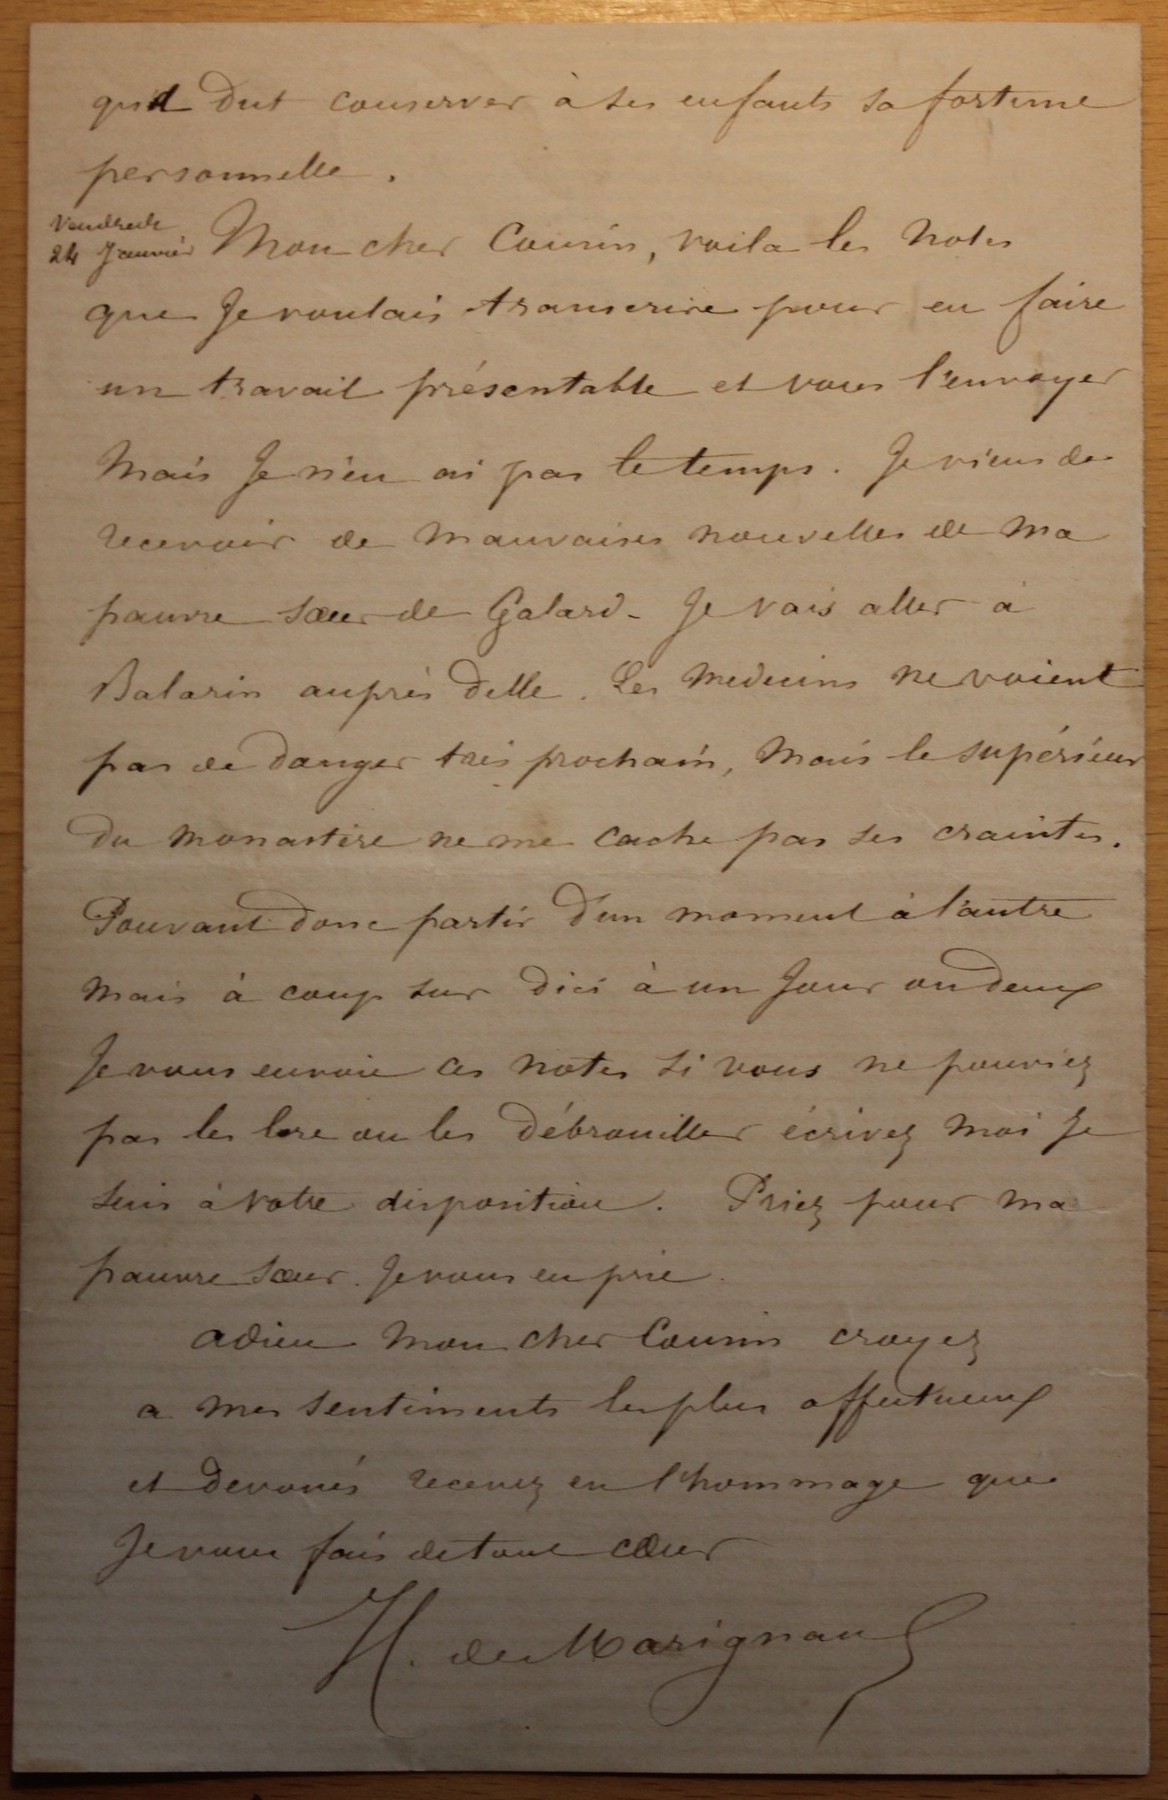 qu'il dut conserver à ses enfants sa fortune
personnelle.
Vendredi
24 Janvier
Mon cher Cousin, voila les notes
que Je voulais transcrire pour en faire
un travail présentable et vous l'envoyer
Mais Je n'en ai pas le temps. Je viens de
recevoir de mauvaises nouvelles de ma
pauvre sœur de Galard - Je vais aller à
Balarin auprès d'elle. Les medecins ne voient
pas de danger très prochain, mais le supérieur
du monastère ne me cache pas ses craintes.
Pouvant donc partir d'un moment à l'autre
Mais à coup sur d'ici à un Jour ou deux
Je vous envoie ces notes si vous ne pouviez
pas les lire ou les débrouiller écrivez moi Je
suis à votre disposition. Priez pour ma
pauvre sœur. Je vous en prie.
adieu mon cher Cousin croyez
a mes sentiments les plus affectueux
et devoués recevez en l'hommage que
Je vous fais de tout cœur
H. de Marignan